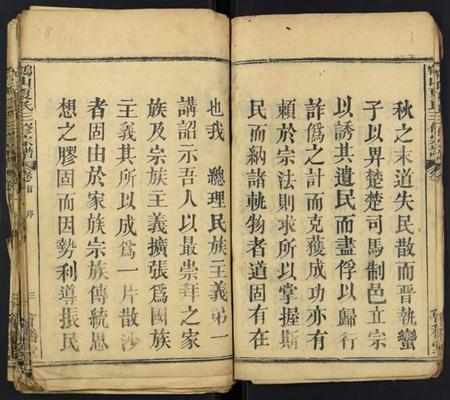 秋之末道失民散而晉執蠻
子以畀楚楚司馬制邑立宗
以誘其遺民而盡俘以歸行
詐僞之計而克獲成功亦有
賴於宗法則求所以掌握斯
民而納諸軌物者道固有在
也我 總理民族主義第一
講詔示吾人以最崇拜之家
族及宗族主義擴張爲國族
主義其所以成爲一片散沙
者固由於家族宗族傳統思
想之膠固而因勢利導振民
三修宗譜
卷首 序
三